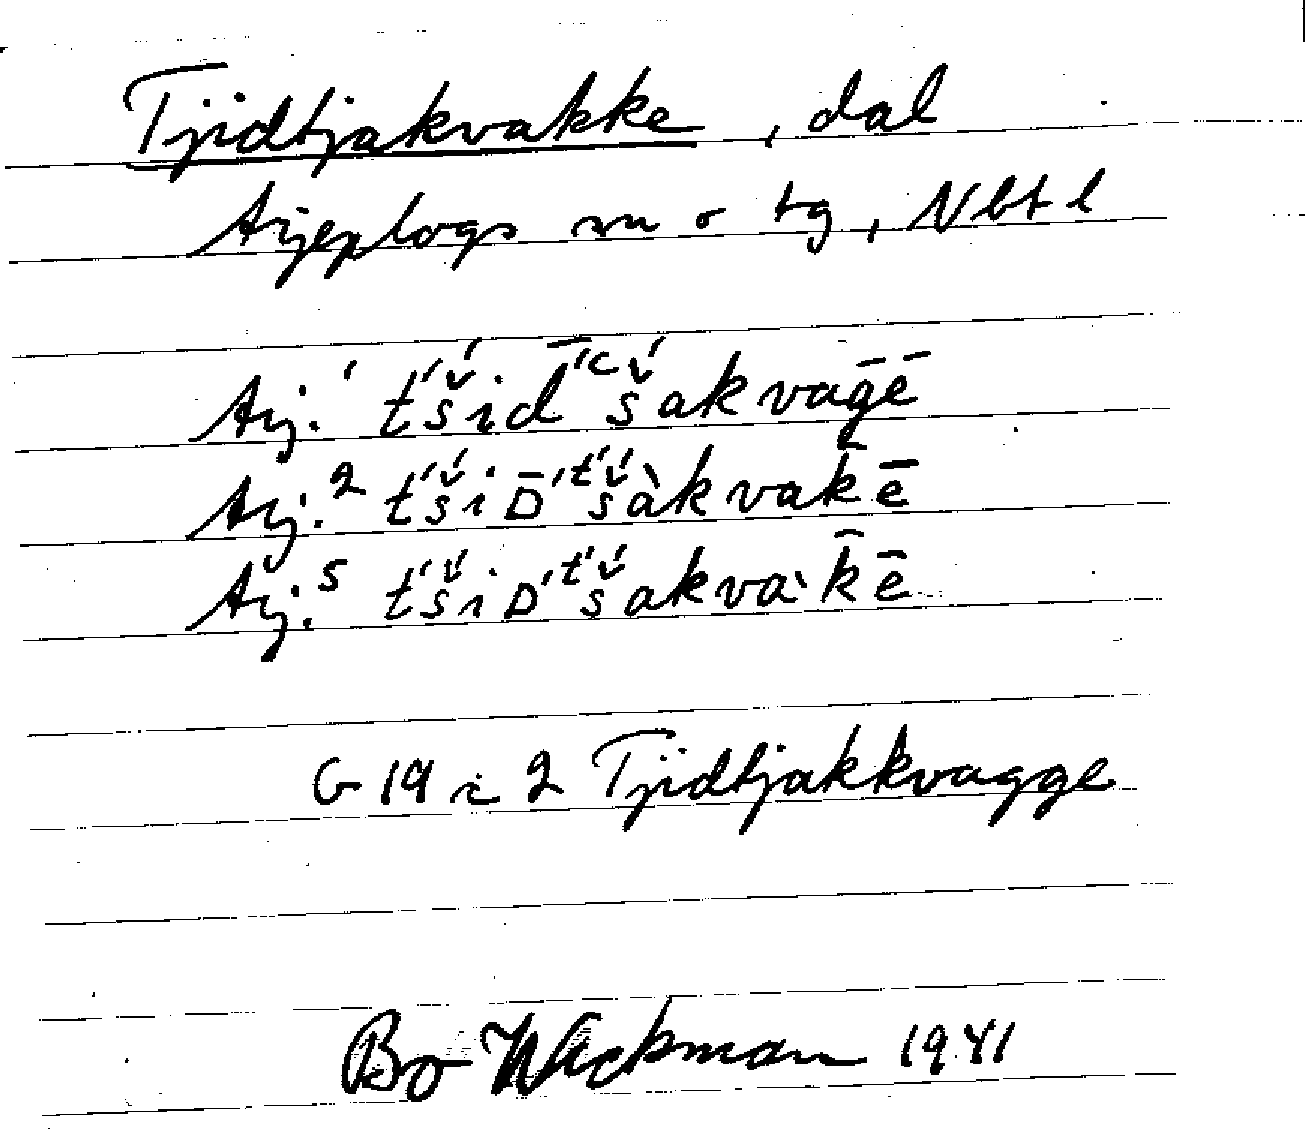 Tjidtjakvakke, dal
Arjeplogs sn o tg, Nbt l
Arj.¹ t́š́id̄́ᶜš́akvaḡē
Arj.² t́š́iD̄́ᵗ́š́àkvak̄ē
Arj.⁵ t́š́iD́ᵗ́š́akvàk̄ē
G 19 i 2 Tjidtjakkvagge
Bo Wickman 1941